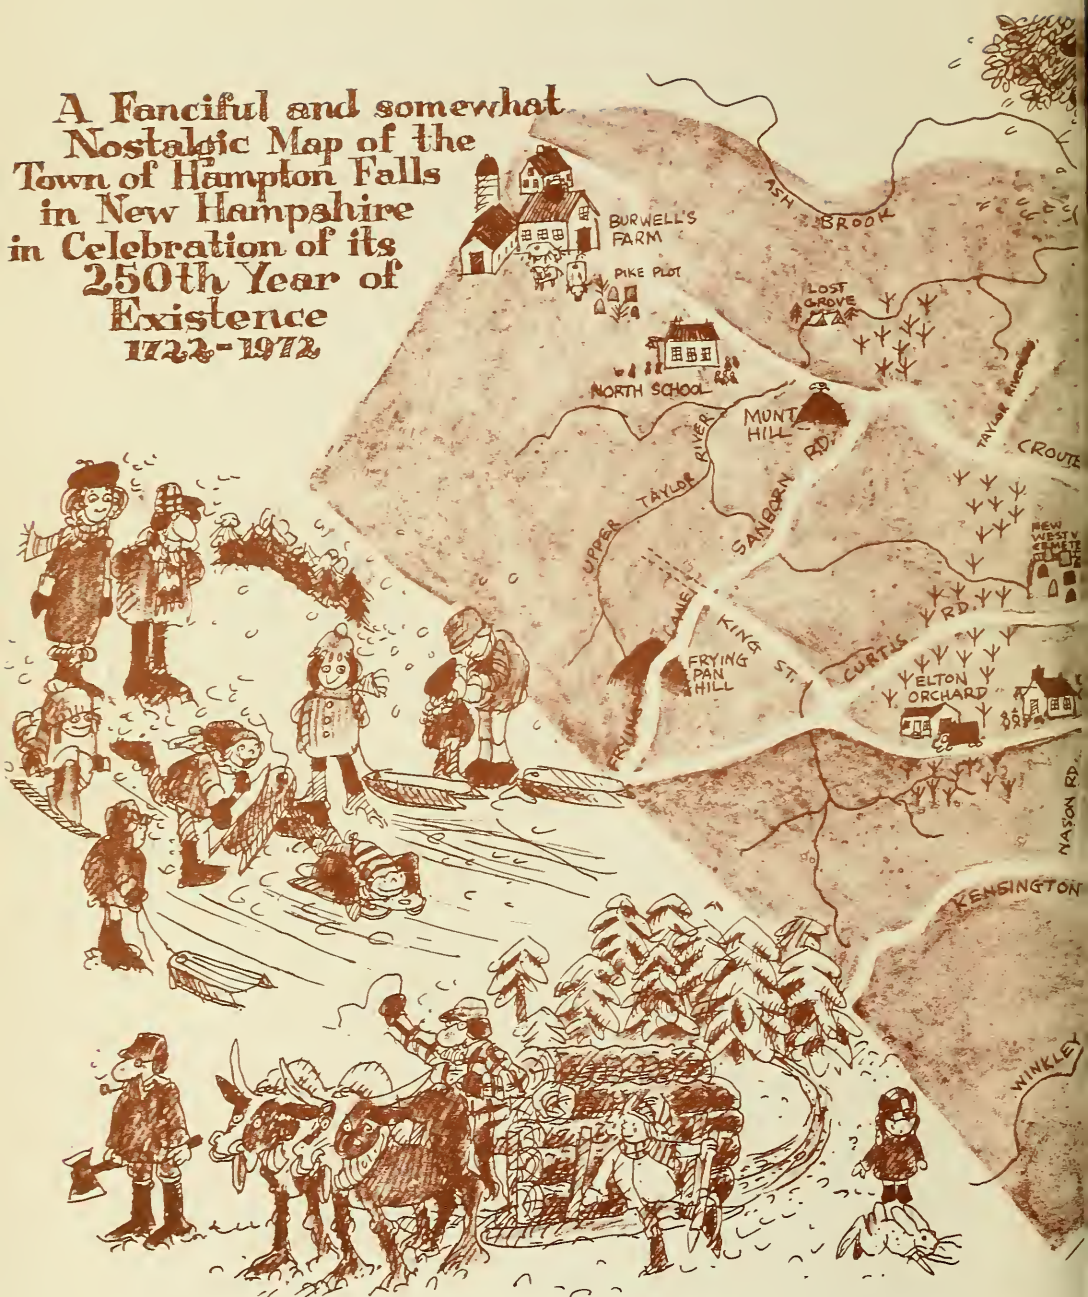 A Fanciful and somewhat
Nostalgic Map of the
Town of Hampton Falls
in New Hampshire
in Celebration of its
250th Year of
Existence
1722-1972
ASH BROOK
BURWELL'S
FARM
PIKE PLOT
LOST
GROVE
NORTH SCHOOL
MUNT
HILL
TAYLOR RIVER
CROUTE
UPPER TAYLOR RIVER
SANBORN RD.
NEW
WEST V
CEMETE
FRYING LANE
KING ST.
CURTIS RD.
FRYING
PAN
HILL
ELTON
ORCHARD
NASON RD.
KENSINGTON
WINKLEY
?